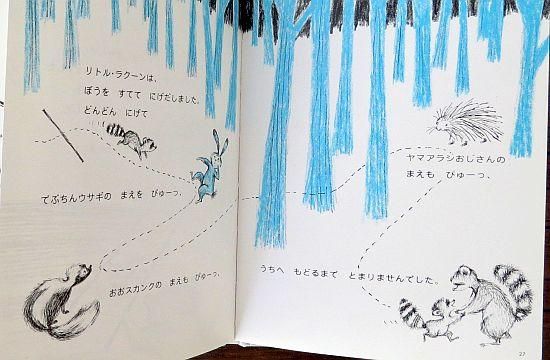 リトル・ラクーンは、
ぼうを すてて にげだしました。
どんどん にげて
でぶちんウサギの まえを ぴゅーっ、
おおスカンクの まえも ぴゅーっ、
ヤマアラシおじさんの
まえも ぴゅーっ、
うちへ もどるまで とまりませんでした。
27